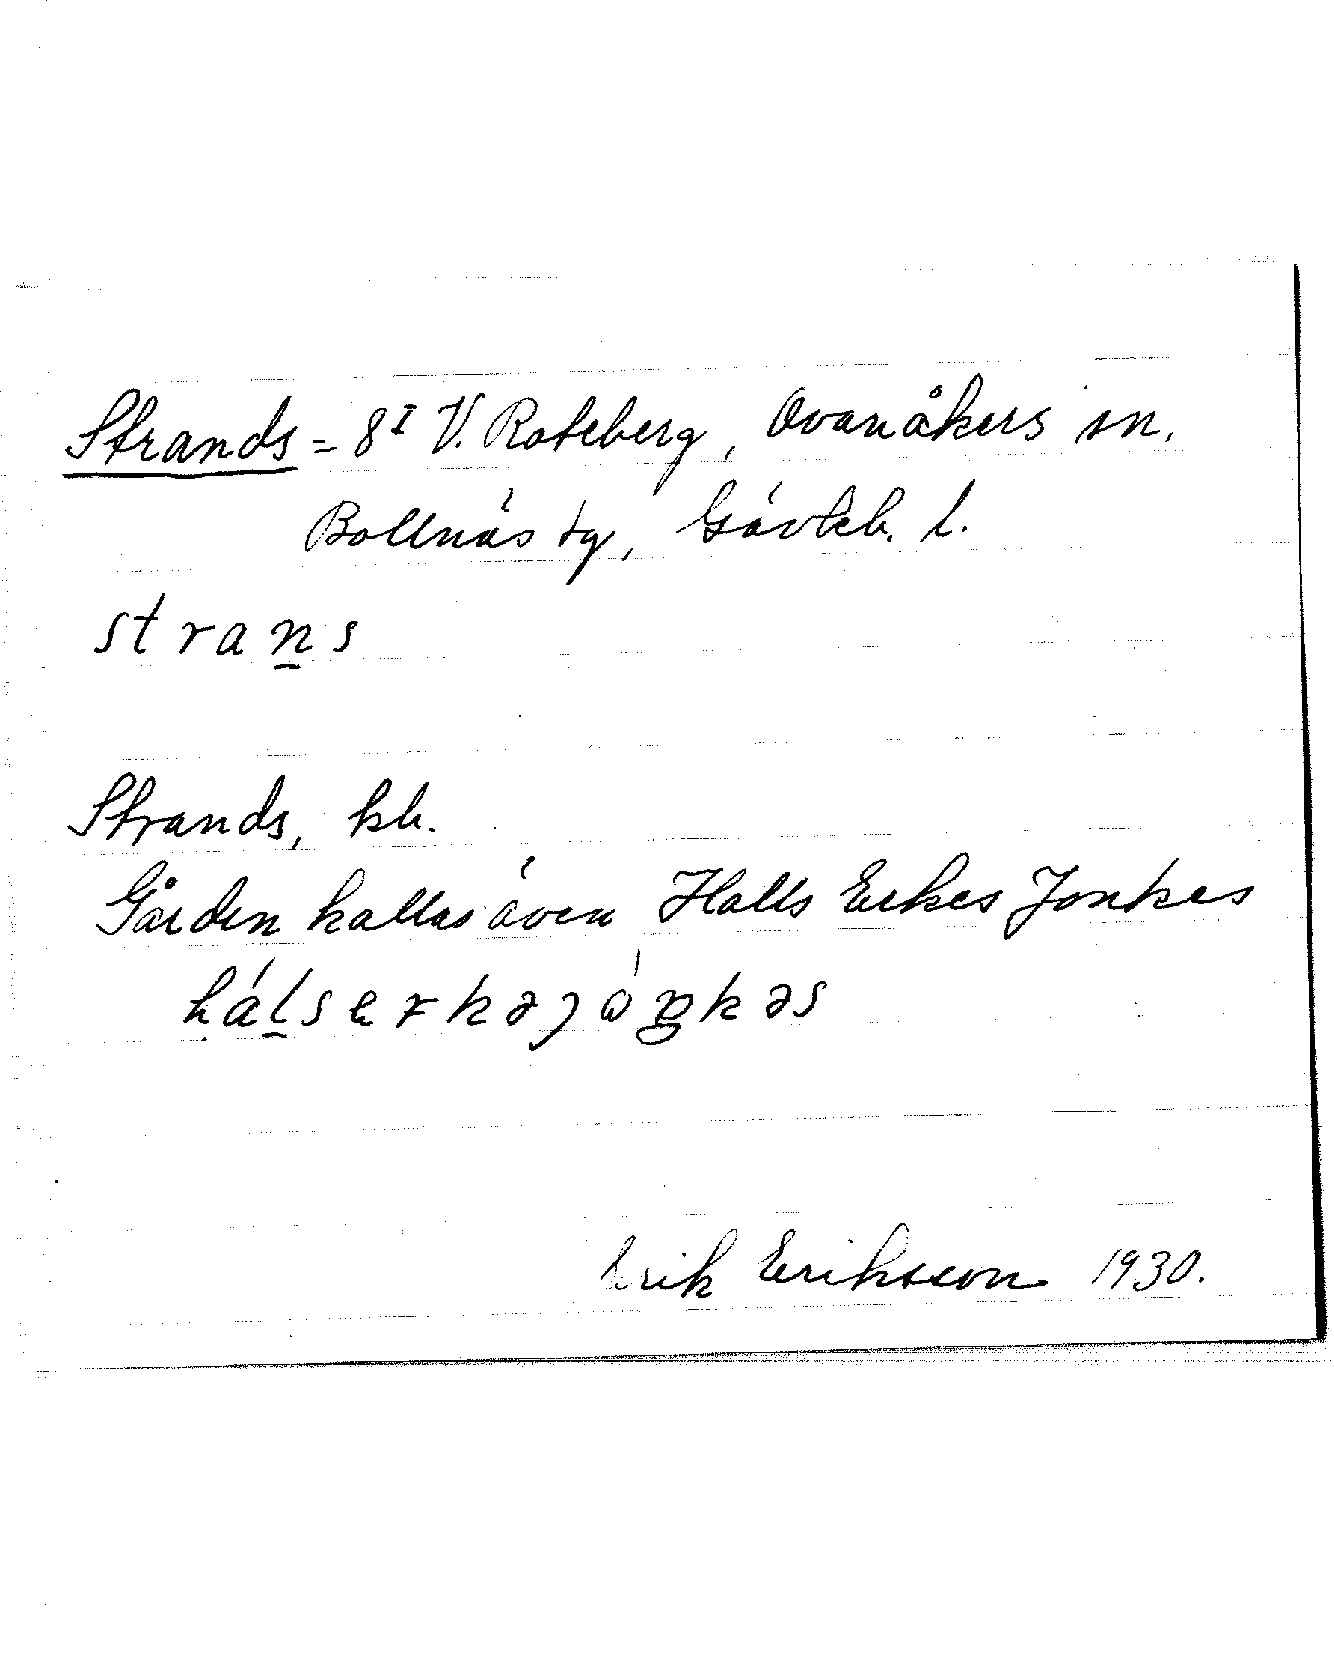 Strands = 8I V. Roteberg, Ovanåkers sn,
Bollnäs tg, Gävleb. l.
strans
Strands, kb.
Gården kallas även Halls Erkes Jonkes
hálserkəjóŋkəs
Erik Eriksson 1930.